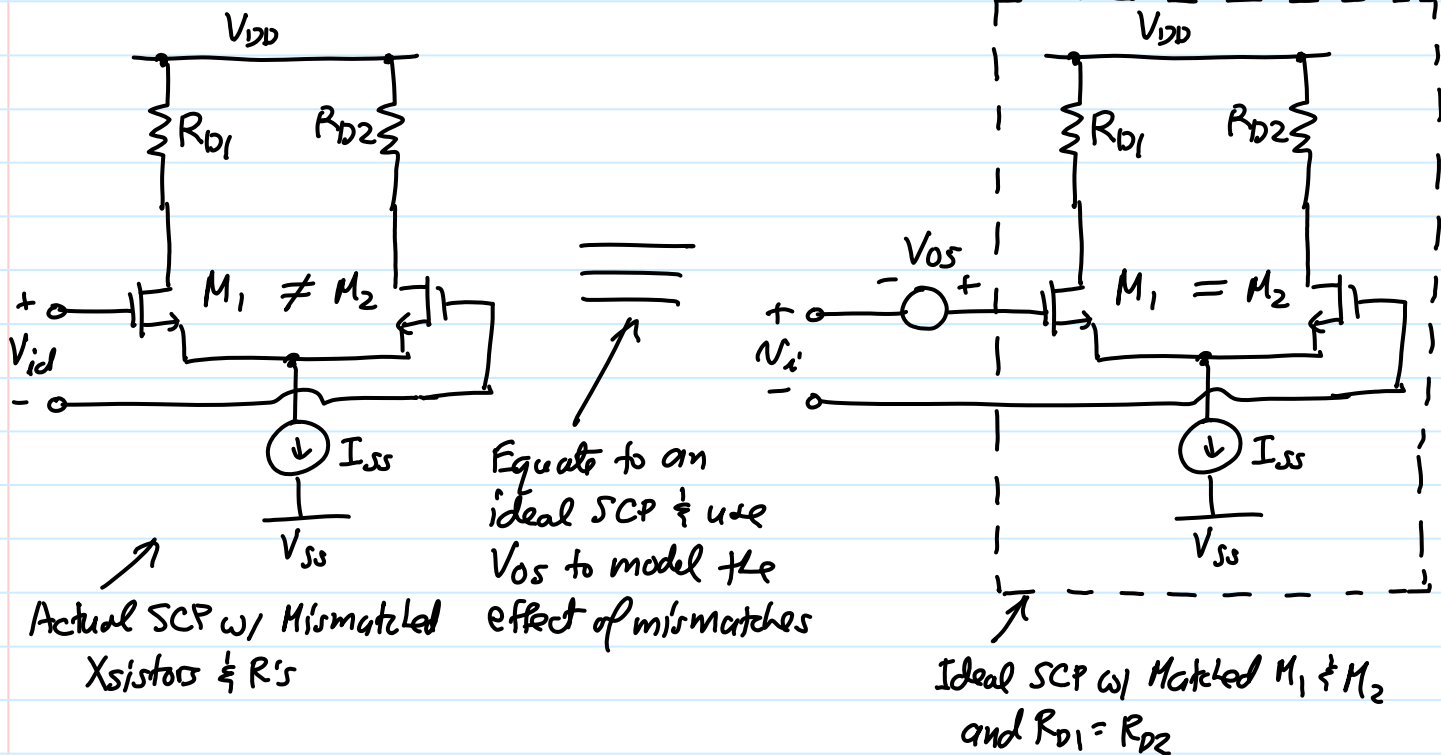 V_DD
R_D1
R_D2
M_1 ≠ M_2
+
V_id
-
I_SS
V_SS
Actual SCP w/ Mismatched
Xsistors & R's
Equate to an
ideal SCP & use
V_OS to model the
effect of mismatches
V_DD
R_D1
R_D2
V_OS
- +
M_1 = M_2
+
V_i
-
I_SS
V_SS
Ideal SCP w/ Matched M_1 & M_2
and R_D1 = R_D2